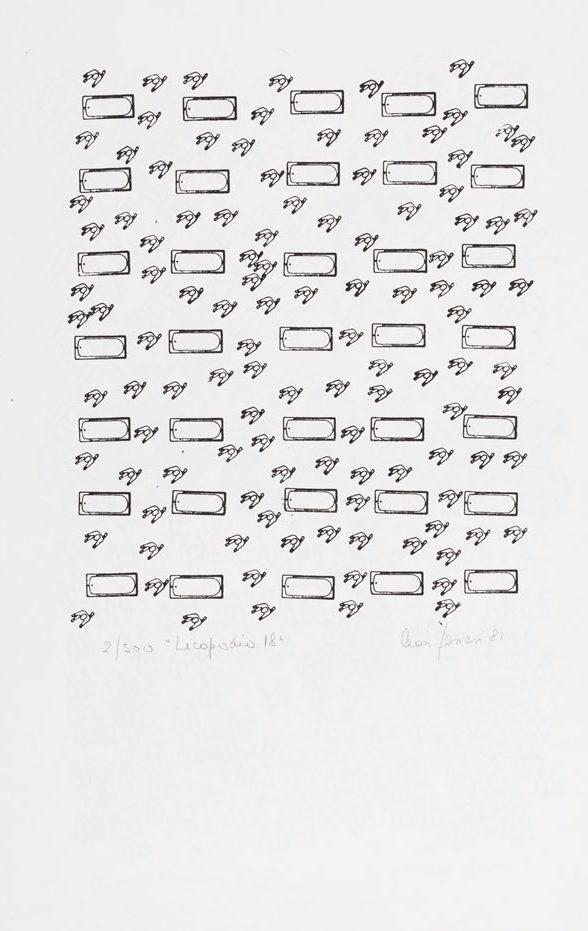 2/500 "Licopodio 18" León Ferrari 81